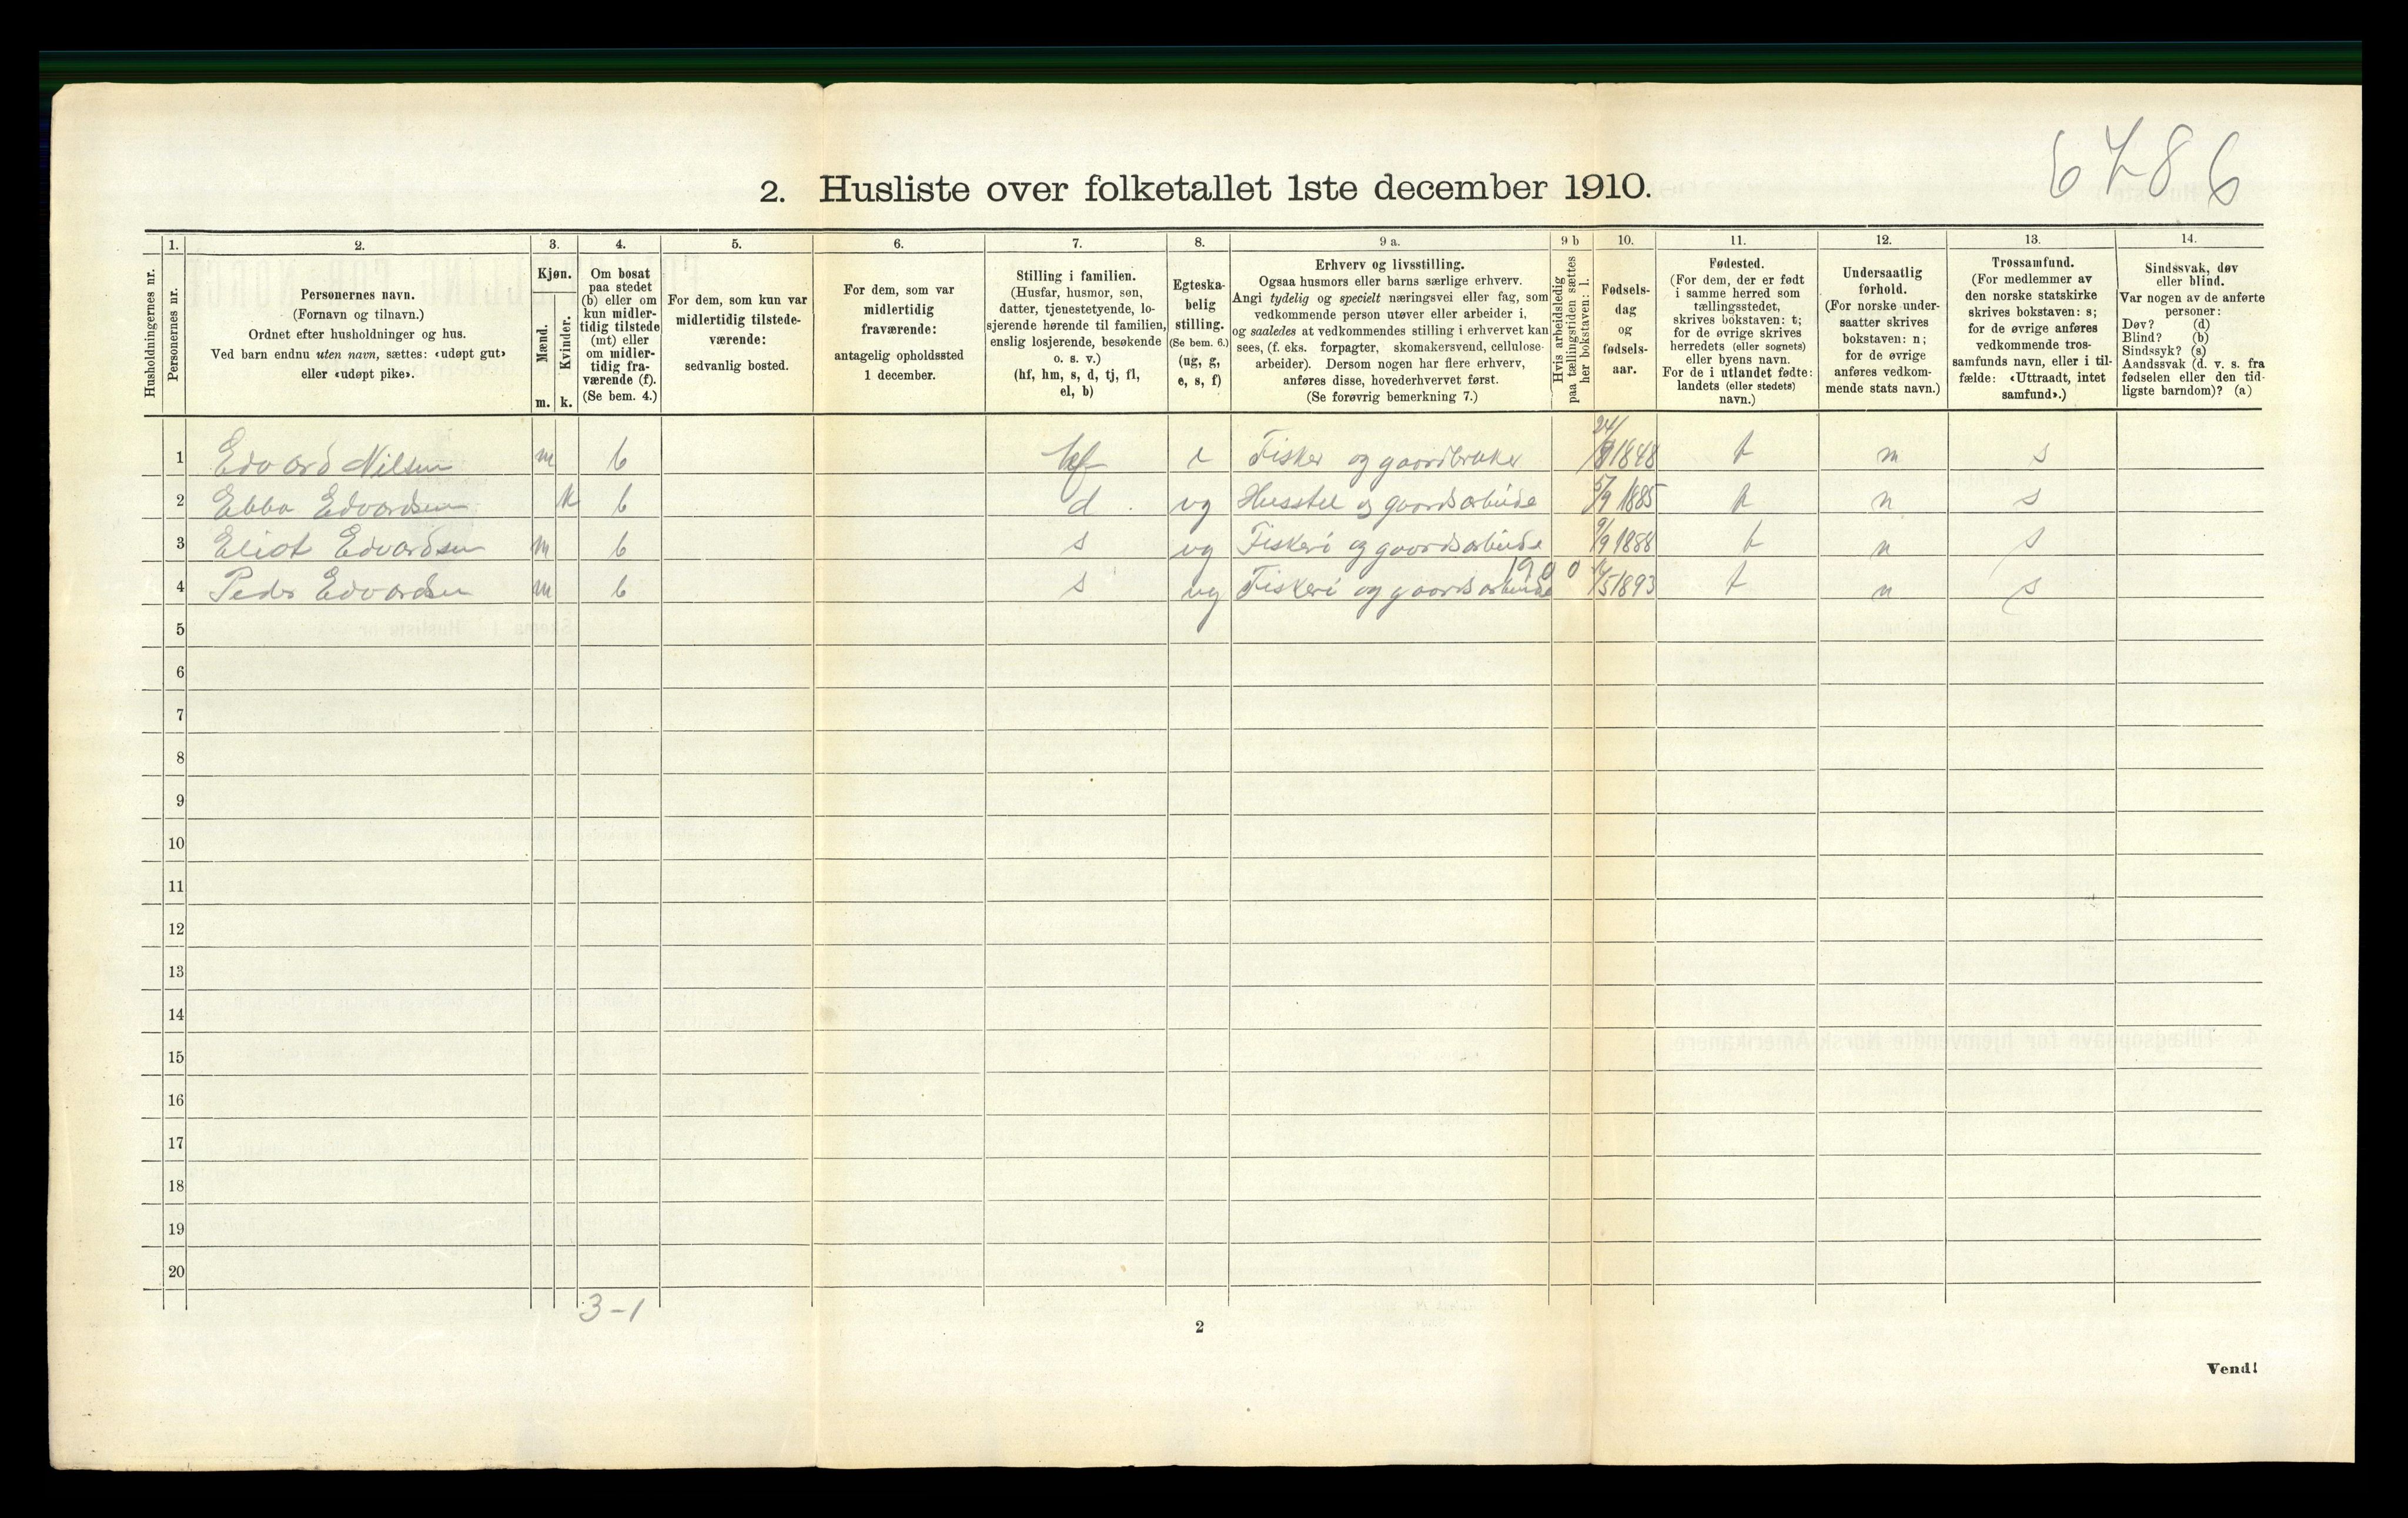 6786
2. Husliste over folketallet 1ste december 1910.
Husholdningernes nr.
1. Personernes nr.
2. Personernes navn.
(Fornavn og tilnavn.)
Ordnet efter husholdninger og hus.
Ved barn endnu uten navn, sættes: «udøpt gut»
eller «udøpt pike».
3. Kjøn.
Mænd. m.
Kvinder. k.
4. Om bosat
paa stedet
(b) eller om
kun midler-
tidig tilstede
(mt) eller
om midler-
tidig fra-
værende (f).
(Se bem. 4.)
5. For dem, som kun var
midlertidig tilstede-
værende:
sedvanlig bosted.
6. For dem, som var
midlertidig
fraværende:
antagelig opholdssted
1 december.
7. Stilling i familien.
(Husfar, husmor, søn,
datter, tjenestetyende, lo-
sjerende hørende til familien,
enslig losjerende, besøkende
o. s. v.)
(hf, hm, s, d, tj, fl,
el, b)
8. Egteska-
belig
stilling.
(Se bem. 6.)
(ug, g,
e, s, f)
9 a. Erhverv og livsstilling.
Ogsaa husmors eller barns særlige erhverv.
Angi tydelig og specielt næringsvei eller fag, som
vedkommende person utøver eller arbeider i,
og saaledes at vedkommendes stilling i erhvervet kan
sees, (f. eks. forpagter, skomakersvend, cellulose-
arbeider). Dersom nogen har flere erhverv,
anføres disse, hovederhvervet først.
(Se forøvrig bemerkning 7.)
9 b Hvis arbeidsledig
paa tællingstiden sættes
her bokstaven: l.
10. Fødsels-
dag
og
fødsels-
aar.
11. Fødested.
(For dem, der er født
i samme herred som
tællingsstedet,
skrives bokstaven: t;
for de øvrige skrives
herredets (eller sognets)
eller byens navn.
For de i utlandet fødte:
landets (eller stedets)
navn.)
12. Undersaatlig
forhold.
(For norske under-
saatter skrives
bokstaven: n;
for de øvrige
anføres vedkom-
mende stats navn.)
13. Trossamfund.
(For medlemmer av
den norske statskirke
skrives bokstaven: s;
for de øvrige anføres
vedkommende tros-
samfunds navn, eller i til-
fælde: «Uttraadt, intet
samfund».)
14. Sindssvak, døv
eller blind.
Var nogen av de anførte
personer:
Døv? (d)
Blind? (b)
Sindssyk? (s)
Aandssvak (d. v. s. fra
fødselen eller den tid-
ligste barndom)? (a)
1 Edvard Nilsen m b hf e Fisker og gaardbruker 1848 t n s
2 Ebba Edvardsen k b d ug Husstel og gaardsarbeide 5/9 1885 t n s
3 Eliot Edvardsen m b s ug Fiskeri og gaardsarbeide 9/9 1888 t n s
1900
4 Peder Edvardsen m b s ug Fiskeri og gaardsarbeide 1893 t n s
5
6
7
8
9
10
11
12
13
14
15
16
17
18
19
20
3-1
2
Vend!